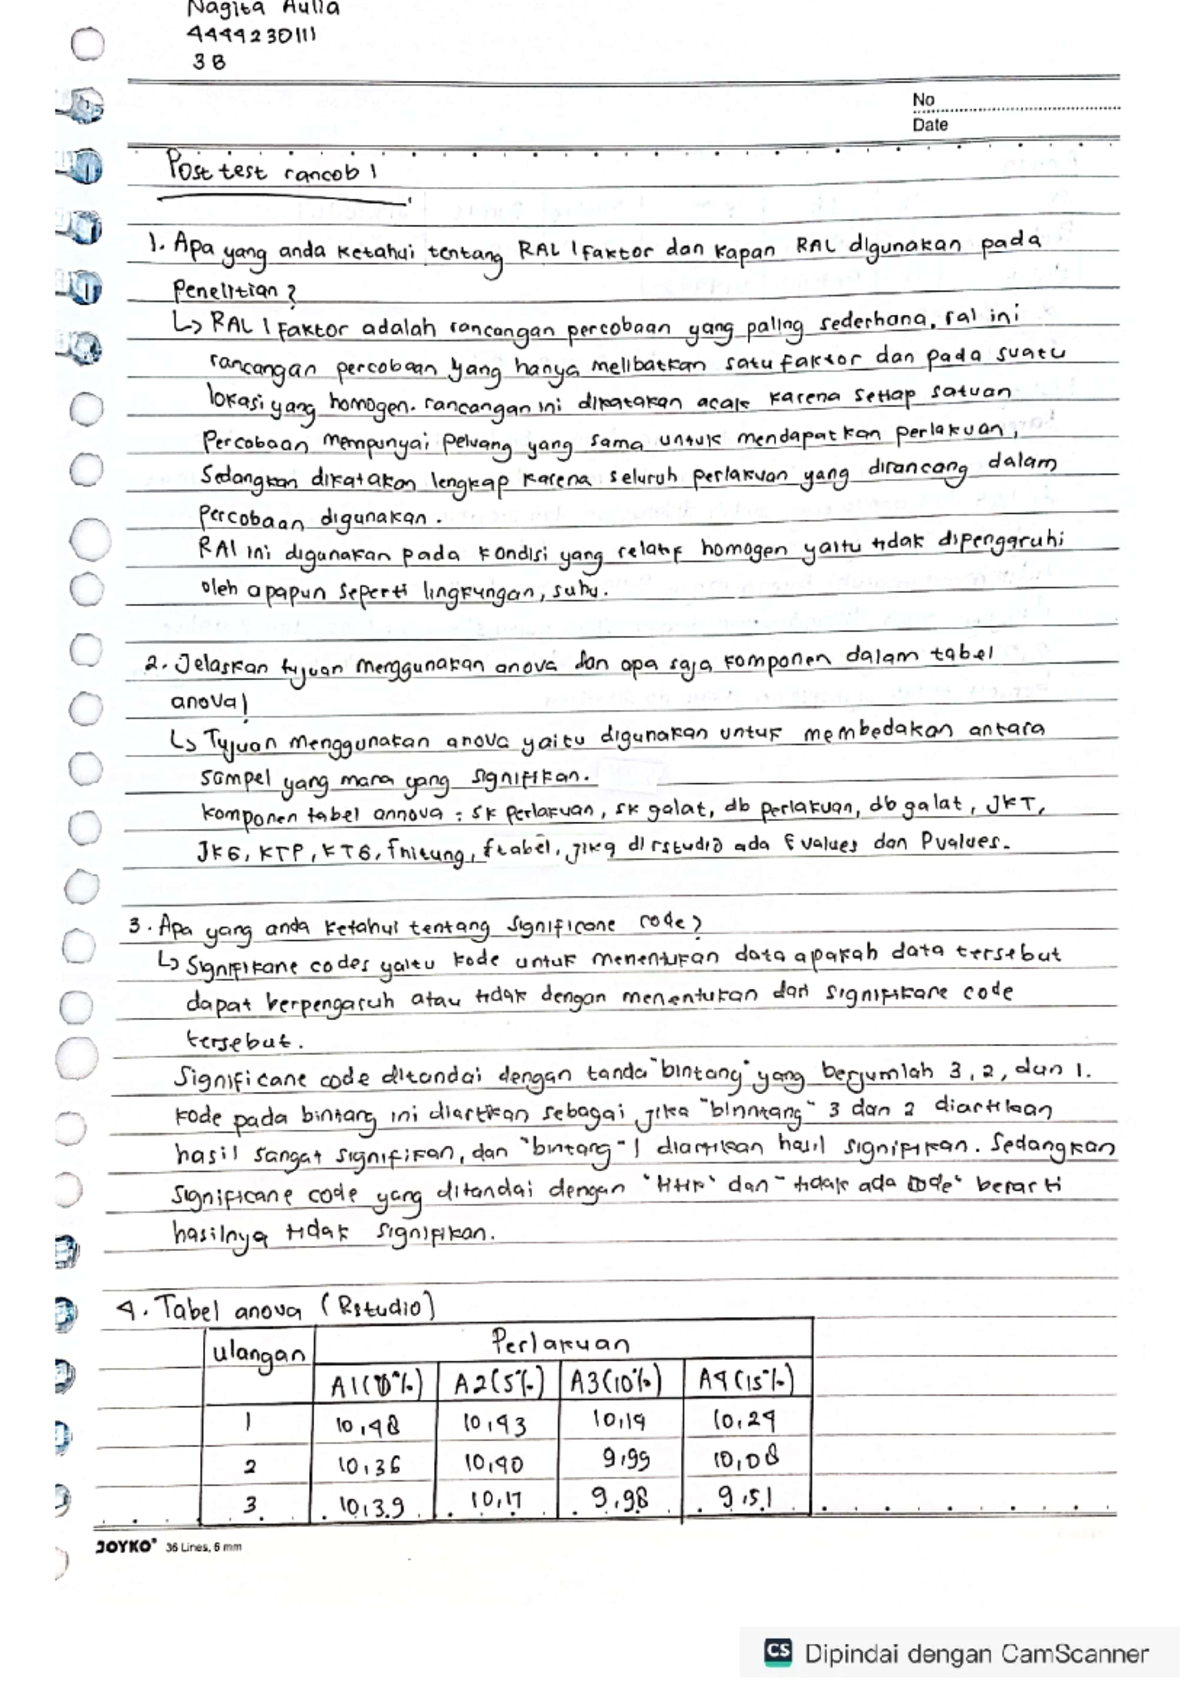 Nagita Aulia
4444230111
3B
No
Date
Post test rancob 1
1. Apa yang anda ketahui tentang RAL 1 faktor dan kapan RAL digunakan pada
Penelitian?
↳ RAL 1 Faktor adalah rancangan percobaan yang paling sederhana, ral ini
rancangan percobaan yang hanya melibatkan satu faktor dan pada suatu
lokasi yang homogen. rancangan ini dikatakan acak karena setiap satuan
Percobaan mempunyai peluang yang sama untuk mendapatkan perlakuan,
Sedangkan dikatakan lengkap karena seluruh perlakuan yang dirancang dalam
Percobaan digunakan.
RAl ini digunakan pada kondisi yang relatif homogen yaitu tidak dipengaruhi
oleh apapun seperti lingkungan, suhu.
2. Jelaskan tujuan menggunakan anova dan apa saja komponen dalam tabel
anova!
↳ Tujuan menggunakan anova yaitu digunakan untuk membedakan antara
sampel yang mana yang signifikan.
komponen tabel annova : SK perlakuan, SK galat, db perlakuan, db galat, JKT,
JKG, KTP, KTG, fhitung, ftabel, jika di rstudio ada F values dan Pvalues.
3. Apa yang anda ketahui tentang significane code?
↳ Signifikane codes yaitu kode untuk menentukan data apakah data tersebut
dapat berpengaruh atau tidak dengan menentukan dari signifikane code
tersebut.
Significane code ditandai dengan tanda "bintang" yang berjumlah 3, 2, dan 1.
kode pada bintang ini diartikan sebagai jika "binntang" 3 dan 2 diartikan
hasil sangat signifikan, dan "bintang" 1 diartikan hasil signifikan. Sedangkan
significane code yang ditandai dengan "titik" dan "tidak ada code" berarti
hasilnya tidak signifikan.
4. Tabel anova (Rstudio)
ulangan Perlakuan
A1(0%) A2(5%) A3(10%) A4(15%)
1 10,48 10,43 10,19 10,24
2 10,36 10,40 9,99 10,08
3 10,39 10,17 9,98 9,51
JOYKO 36 Lines, 6 mm
CS Dipindai dengan CamScanner